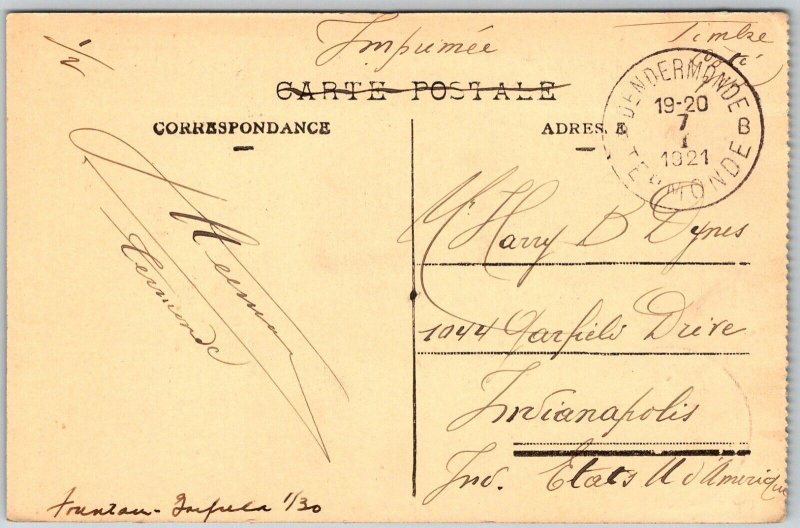 1/2
Imprimée
Timbre
CARTE POSTALE
CORRESPONDANCE
ADRESSE
DENDERMONDE
19-20
7
I
1921
B
TERMONDE
Mr Harry B Dynes
1044 Garfield Drive
Indianapolis
Ind. Etats U d'Amerique
Termonde
1/30